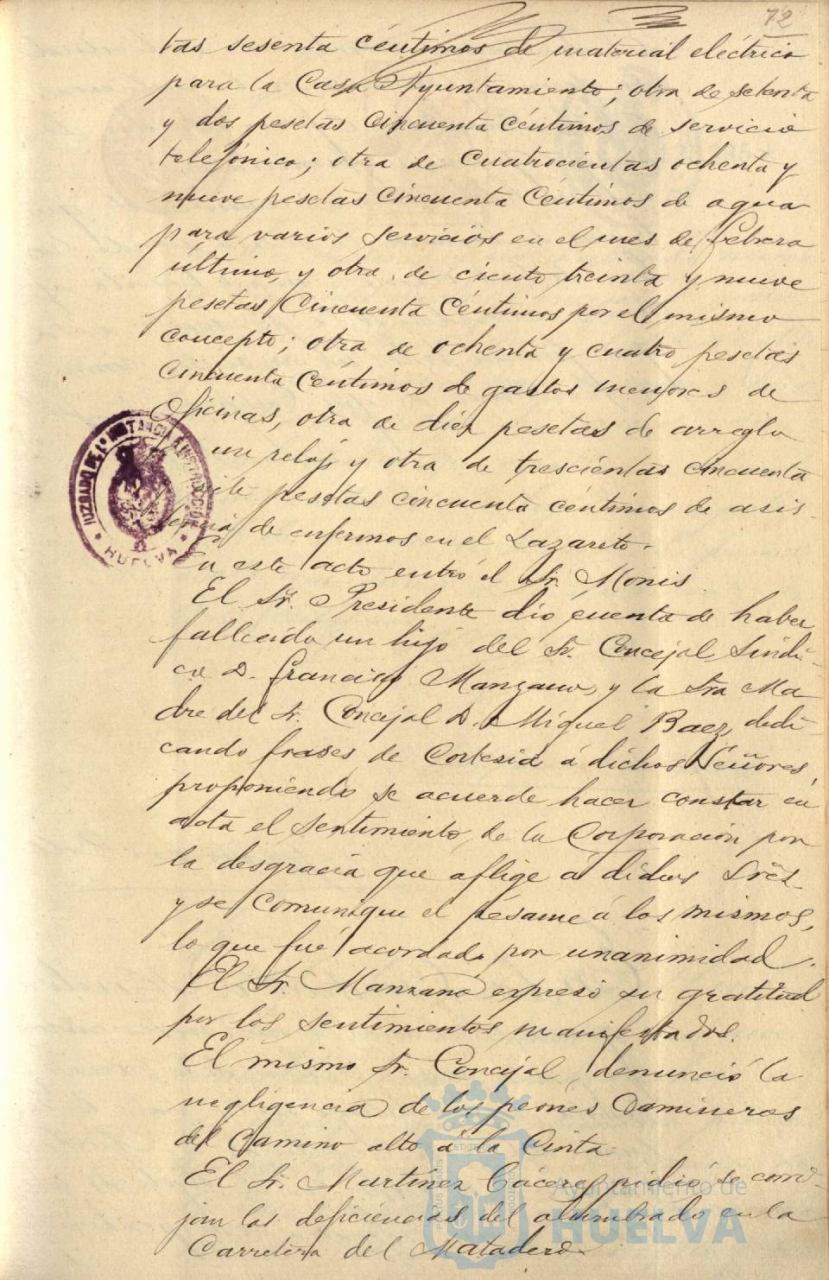 72
tas sesenta céntimos de material eléctrico
para la Casa Ayuntamiento; otra de setenta
y dos pesetas cincuenta céntimos de servicio
telefónico; otra de cuatrocientas ochenta y
nueve pesetas cincuenta céntimos de agua
para varios servicios en el mes de Febrero
último, y otra de ciento treinta y nueve
pesetas cincuenta céntimos por el mismo
concepto; otra de ochenta y cuatro pesetas
cincuenta céntimos de gastos menores de
Oficinas, otra de diez pesetas de arreglo
un reloj y otra de trescientas cincuenta
pesetas cincuenta céntimos de asis-
de enfermos en el Lazareto.
En este acto entró el Sr. Monis.
El Sr. Presidente dió cuenta de haber
fallecido un hijo del Sr. Concejal Síndi-
co D. Francisco Manzano, y la Sra Ma-
dre del Sr. Concejal D. Miguel Baez, dedi-
cando frases de cortesia á dichos Señores,
proponiendo se acuerde hacer constar en
acta el sentimiento de la Corporación por
la desgracia que aflige á dichos Srēs
y se comunique el pésame á los mismos,
lo que fué acordado por unanimidad.
El Sr. Manzano expresó su gratitud
por los sentimientos manifestados.
El mismo Sr. Concejal, denunció la
negligencia de los peones Camineros
del Camino alto á la Cinta
El Sr. Martínez Cáceres pidió se corri-
jan las deficiencias del alumbrado en la
Carretera del Matadero.
JUZGADO DE 1ª INSTANCIA E INSTRUCCION
HUELVA
Ayuntamiento de
HUELVA